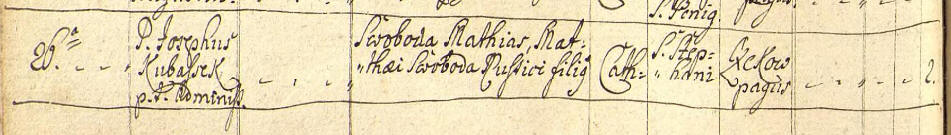 S. Penig.
26.ᵃ
P. Josephus
Kubassek
p. t. Administ.
Swoboda Mathias, Mat-
thaei Swoboda Rustici filiꝯ
Cath:
S. Step-
hani
Kekow
pagus
2.